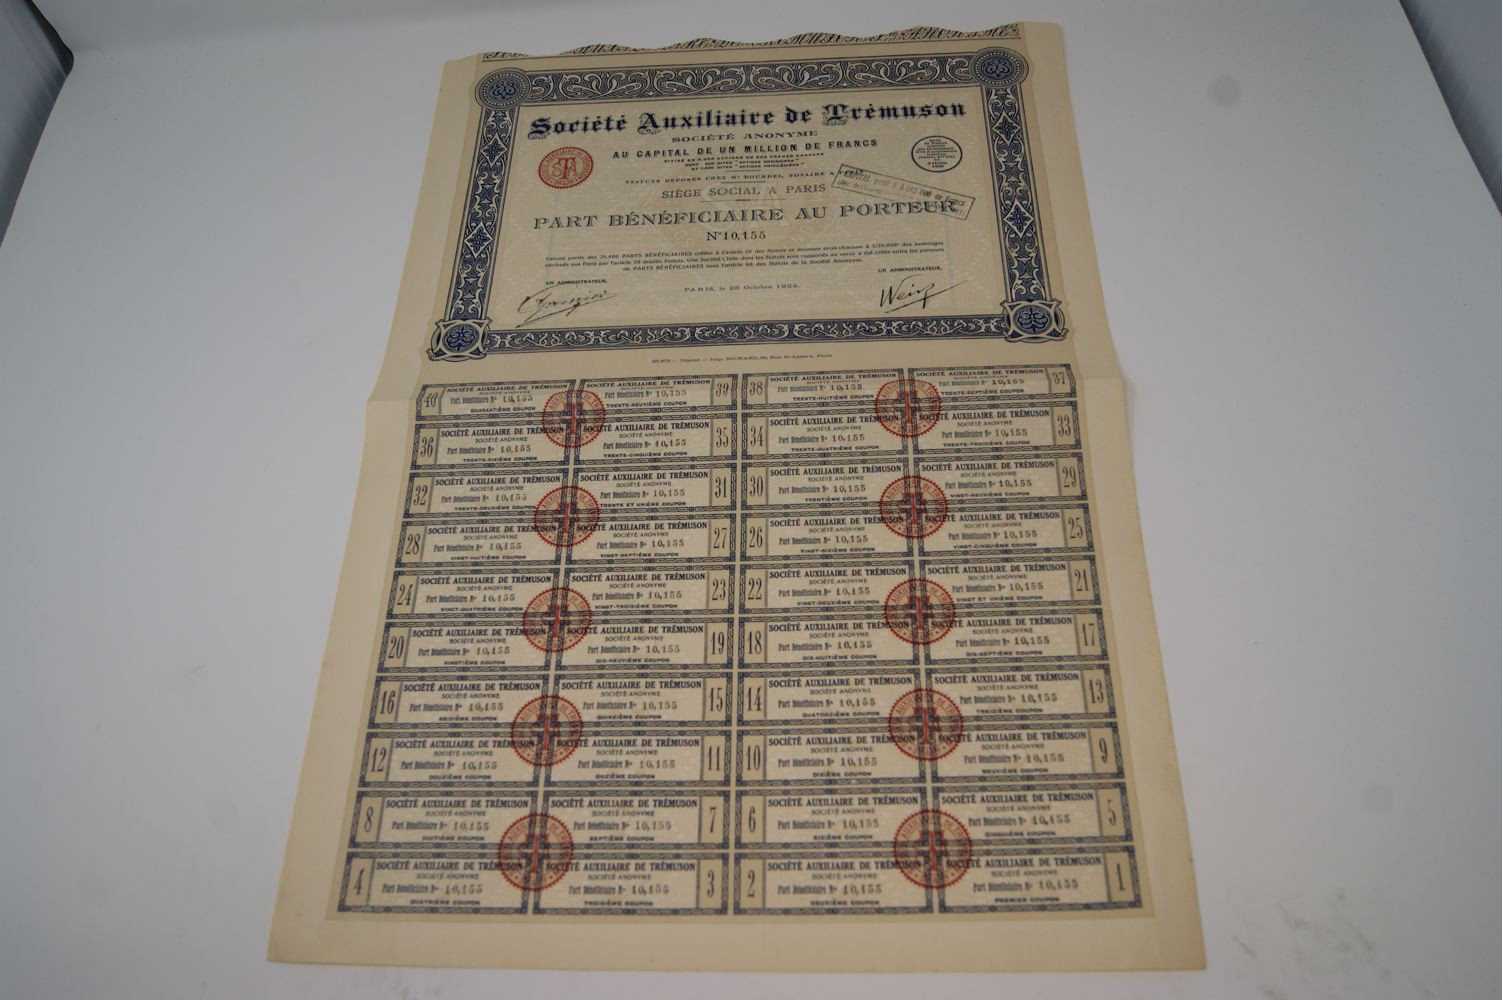 Société Auxiliaire de Trémuson
SOCIÉTÉ ANONYME
AU CAPITAL DE UN MILLION DE FRANCS
DIVISÉ EN 2.000 ACTIONS DE 500 FRANCS CHACUNE
STATUTS DÉPOSÉS CHEZ Me BOURDEL, NOTAIRE A
SIÈGE SOCIAL A PARIS
PART BÉNÉFICIAIRE AU PORTEUR
No 10,155
Faisant partie des 20.000 PARTS BÉNÉFICIAIRES créées à l'article 20 des Statuts et donnant droit chacune à 1/20.000e des avantages
attribués aux Parts par l'article 59 desdits Statuts. Une Société Civile dont les Statuts sont rapportés au verso a été créée entre les porteurs
de PARTS BÉNÉFICIAIRES sous l'article 68 des Statuts de la Société Anonyme.
UN ADMINISTRATEUR,
UN ADMINISTRATEUR,
PARIS, le 28 Octobre 1924.
Imp. RICHARD, Rue St-Lazare, Paris
40 SOCIÉTÉ AUXILIAIRE DE TRÉMUSON SOCIÉTÉ ANONYME Part Bénéficiaire No 10,155 QUARANTIÈME COUPON
SOCIÉTÉ AUXILIAIRE DE TRÉMUSON SOCIÉTÉ ANONYME Part Bénéficiaire No 10,155 TRENTE-NEUVIÈME COUPON 39
38 SOCIÉTÉ AUXILIAIRE DE TRÉMUSON SOCIÉTÉ ANONYME Part Bénéficiaire No 10,155 TRENTE-HUITIÈME COUPON
SOCIÉTÉ AUXILIAIRE DE TRÉMUSON SOCIÉTÉ ANONYME Part Bénéficiaire No 10,155 TRENTE-SEPTIÈME COUPON 37
36 SOCIÉTÉ AUXILIAIRE DE TRÉMUSON SOCIÉTÉ ANONYME Part Bénéficiaire No 10,155 TRENTE-SIXIÈME COUPON
SOCIÉTÉ AUXILIAIRE DE TRÉMUSON SOCIÉTÉ ANONYME Part Bénéficiaire No 10,155 TRENTE-CINQUIÈME COUPON 35
34 SOCIÉTÉ AUXILIAIRE DE TRÉMUSON SOCIÉTÉ ANONYME Part Bénéficiaire No 10,155 TRENTE-QUATRIÈME COUPON
SOCIÉTÉ AUXILIAIRE DE TRÉMUSON SOCIÉTÉ ANONYME Part Bénéficiaire No 10,155 TRENTE-TROISIÈME COUPON 33
32 SOCIÉTÉ AUXILIAIRE DE TRÉMUSON SOCIÉTÉ ANONYME Part Bénéficiaire No 10,155 TRENTE-DEUXIÈME COUPON
SOCIÉTÉ AUXILIAIRE DE TRÉMUSON SOCIÉTÉ ANONYME Part Bénéficiaire No 10,155 TRENTE ET UNIÈME COUPON 31
30 SOCIÉTÉ AUXILIAIRE DE TRÉMUSON SOCIÉTÉ ANONYME Part Bénéficiaire No 10,155 TRENTIÈME COUPON
SOCIÉTÉ AUXILIAIRE DE TRÉMUSON SOCIÉTÉ ANONYME Part Bénéficiaire No 10,155 VINGT-NEUVIÈME COUPON 29
28 SOCIÉTÉ AUXILIAIRE DE TRÉMUSON SOCIÉTÉ ANONYME Part Bénéficiaire No 10,155 VINGT-HUITIÈME COUPON
SOCIÉTÉ AUXILIAIRE DE TRÉMUSON SOCIÉTÉ ANONYME Part Bénéficiaire No 10,155 VINGT-SEPTIÈME COUPON 27
26 SOCIÉTÉ AUXILIAIRE DE TRÉMUSON SOCIÉTÉ ANONYME Part Bénéficiaire No 10,155 VINGT-SIXIÈME COUPON
SOCIÉTÉ AUXILIAIRE DE TRÉMUSON SOCIÉTÉ ANONYME Part Bénéficiaire No 10,155 VINGT-CINQUIÈME COUPON 25
24 SOCIÉTÉ AUXILIAIRE DE TRÉMUSON SOCIÉTÉ ANONYME Part Bénéficiaire No 10,155 VINGT-QUATRIÈME COUPON
SOCIÉTÉ AUXILIAIRE DE TRÉMUSON SOCIÉTÉ ANONYME Part Bénéficiaire No 10,155 VINGT-TROISIÈME COUPON 23
22 SOCIÉTÉ AUXILIAIRE DE TRÉMUSON SOCIÉTÉ ANONYME Part Bénéficiaire No 10,155 VINGT-DEUXIÈME COUPON
SOCIÉTÉ AUXILIAIRE DE TRÉMUSON SOCIÉTÉ ANONYME Part Bénéficiaire No 10,155 VINGT ET UNIÈME COUPON 21
20 SOCIÉTÉ AUXILIAIRE DE TRÉMUSON SOCIÉTÉ ANONYME Part Bénéficiaire No 10,155 VINGTIÈME COUPON
SOCIÉTÉ AUXILIAIRE DE TRÉMUSON SOCIÉTÉ ANONYME Part Bénéficiaire No 10,155 DIX-NEUVIÈME COUPON 19
18 SOCIÉTÉ AUXILIAIRE DE TRÉMUSON SOCIÉTÉ ANONYME Part Bénéficiaire No 10,155 DIX-HUITIÈME COUPON
SOCIÉTÉ AUXILIAIRE DE TRÉMUSON SOCIÉTÉ ANONYME Part Bénéficiaire No 10,155 DIX-SEPTIÈME COUPON 17
16 SOCIÉTÉ AUXILIAIRE DE TRÉMUSON SOCIÉTÉ ANONYME Part Bénéficiaire No 10,155 SEIZIÈME COUPON
SOCIÉTÉ AUXILIAIRE DE TRÉMUSON SOCIÉTÉ ANONYME Part Bénéficiaire No 10,155 QUINZIÈME COUPON 15
14 SOCIÉTÉ AUXILIAIRE DE TRÉMUSON SOCIÉTÉ ANONYME Part Bénéficiaire No 10,155 QUATORZIÈME COUPON
SOCIÉTÉ AUXILIAIRE DE TRÉMUSON SOCIÉTÉ ANONYME Part Bénéficiaire No 10,155 TREIZIÈME COUPON 13
12 SOCIÉTÉ AUXILIAIRE DE TRÉMUSON SOCIÉTÉ ANONYME Part Bénéficiaire No 10,155 DOUZIÈME COUPON
SOCIÉTÉ AUXILIAIRE DE TRÉMUSON SOCIÉTÉ ANONYME Part Bénéficiaire No 10,155 ONZIÈME COUPON 11
10 SOCIÉTÉ AUXILIAIRE DE TRÉMUSON SOCIÉTÉ ANONYME Part Bénéficiaire No 10,155 DIXIÈME COUPON
SOCIÉTÉ AUXILIAIRE DE TRÉMUSON SOCIÉTÉ ANONYME Part Bénéficiaire No 10,155 NEUVIÈME COUPON 9
8 SOCIÉTÉ AUXILIAIRE DE TRÉMUSON SOCIÉTÉ ANONYME Part Bénéficiaire No 10,155 HUITIÈME COUPON
SOCIÉTÉ AUXILIAIRE DE TRÉMUSON SOCIÉTÉ ANONYME Part Bénéficiaire No 10,155 SEPTIÈME COUPON 7
6 SOCIÉTÉ AUXILIAIRE DE TRÉMUSON SOCIÉTÉ ANONYME Part Bénéficiaire No 10,155 SIXIÈME COUPON
SOCIÉTÉ AUXILIAIRE DE TRÉMUSON SOCIÉTÉ ANONYME Part Bénéficiaire No 10,155 CINQUIÈME COUPON 5
4 SOCIÉTÉ AUXILIAIRE DE TRÉMUSON SOCIÉTÉ ANONYME Part Bénéficiaire No 10,155 QUATRIÈME COUPON
SOCIÉTÉ AUXILIAIRE DE TRÉMUSON SOCIÉTÉ ANONYME Part Bénéficiaire No 10,155 TROISIÈME COUPON 3
2 SOCIÉTÉ AUXILIAIRE DE TRÉMUSON SOCIÉTÉ ANONYME Part Bénéficiaire No 10,155 DEUXIÈME COUPON
SOCIÉTÉ AUXILIAIRE DE TRÉMUSON SOCIÉTÉ ANONYME Part Bénéficiaire No 10,155 PREMIER COUPON 1